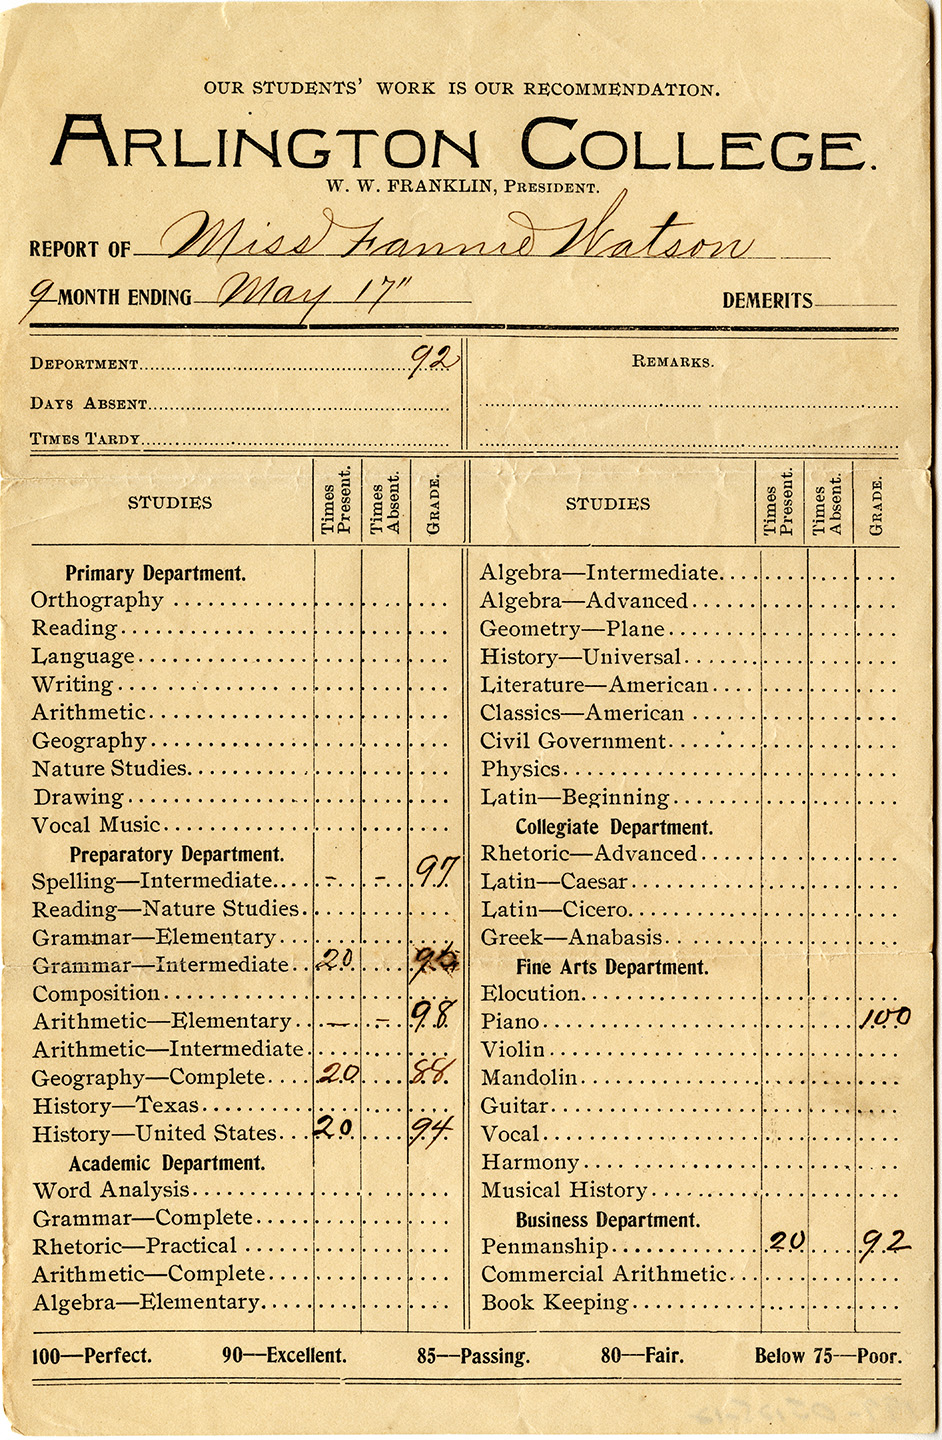 OUR STUDENTS' WORK IS OUR RECOMMENDATION.
ARLINGTON COLLEGE.
W. W. FRANKLIN, PRESIDENT.
REPORT OF Miss Fannie Watson
9 MONTH ENDING May 17" DEMERITS
DEPORTMENT 92
DAYS ABSENT
TIMES TARDY
REMARKS.
STUDIES Times Present. Times Absent. GRADE.
Primary Department.
Orthography
Reading
Language
Writing
Arithmetic
Geography
Nature Studies
Drawing
Vocal Music
Preparatory Department.
Spelling—Intermediate - - 97
Reading—Nature Studies
Grammar—Elementary
Grammar—Intermediate 20
Composition
Arithmetic—Elementary - - 98
Arithmetic—Intermediate
Geography—Complete 20 88
History—Texas
History—United States 20 94
Academic Department.
Word Analysis
Grammar—Complete
Rhetoric—Practical
Arithmetic—Complete
Algebra—Elementary
STUDIES Times Present. Times Absent. GRADE.
Algebra—Intermediate
Algebra—Advanced
Geometry—Plane
History—Universal
Literature—American
Classics—American
Civil Government
Physics
Latin—Beginning
Collegiate Department.
Rhetoric—Advanced
Latin—Caesar
Latin—Cicero
Greek—Anabasis
Fine Arts Department.
Elocution
Piano 100
Violin
Mandolin
Guitar
Vocal
Harmony
Musical History
Business Department.
Penmanship 20 92
Commercial Arithmetic
Book Keeping
100—Perfect. 90—Excellent. 85—Passing. 80—Fair. Below 75—Poor.